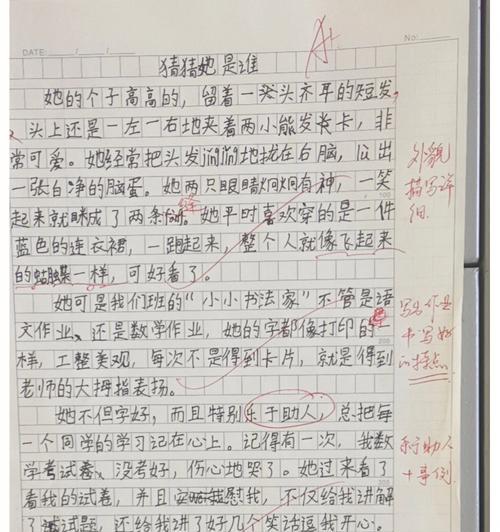 DATE: / /
No:
A+
猜猜她是谁
她的个子高高的，留着一头齐耳的短发，
头上还是一左一右地夹着两小熊发卡，非
常可爱。她经常把头发渐渐地拢在右脑，
一张白净的脸蛋。她两只眼睛炯炯有神，一笑
起来就眯成了两条缝。她平时喜欢穿的是一件
蓝色的连衣裙，一跑起来，整个人就像飞起来
的蝴蝶一样，可好看了。
她可是我们班的“小小书法家”不管是语
文作业、还是数学作业，她的字都像打印的一
样，工整美观，每次不是得到卡片，就是得到
老师的大拇指表扬。
她不但字好，而且特别乐于助人，总把每
一个同学的学习记在心上。记得有一次，我数
学考试卷、没考好，伤心地哭了。她过来看了
看我的试卷，并且安慰我，不仅给我讲解
了试题，还给我讲了好几个笑话逗我开心。
外貌
描写详
细.
写作业
书写好
的特点
乐于助人
+事例